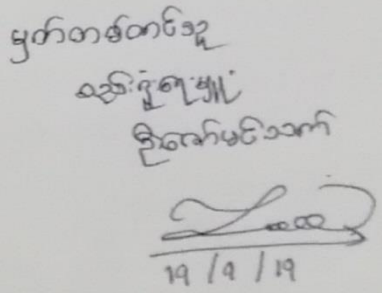 မှတ်တမ်းတင်သူ
စည်းရုံးရေးမှူး
ဦးဇော်မင်းသက်
19/9/19